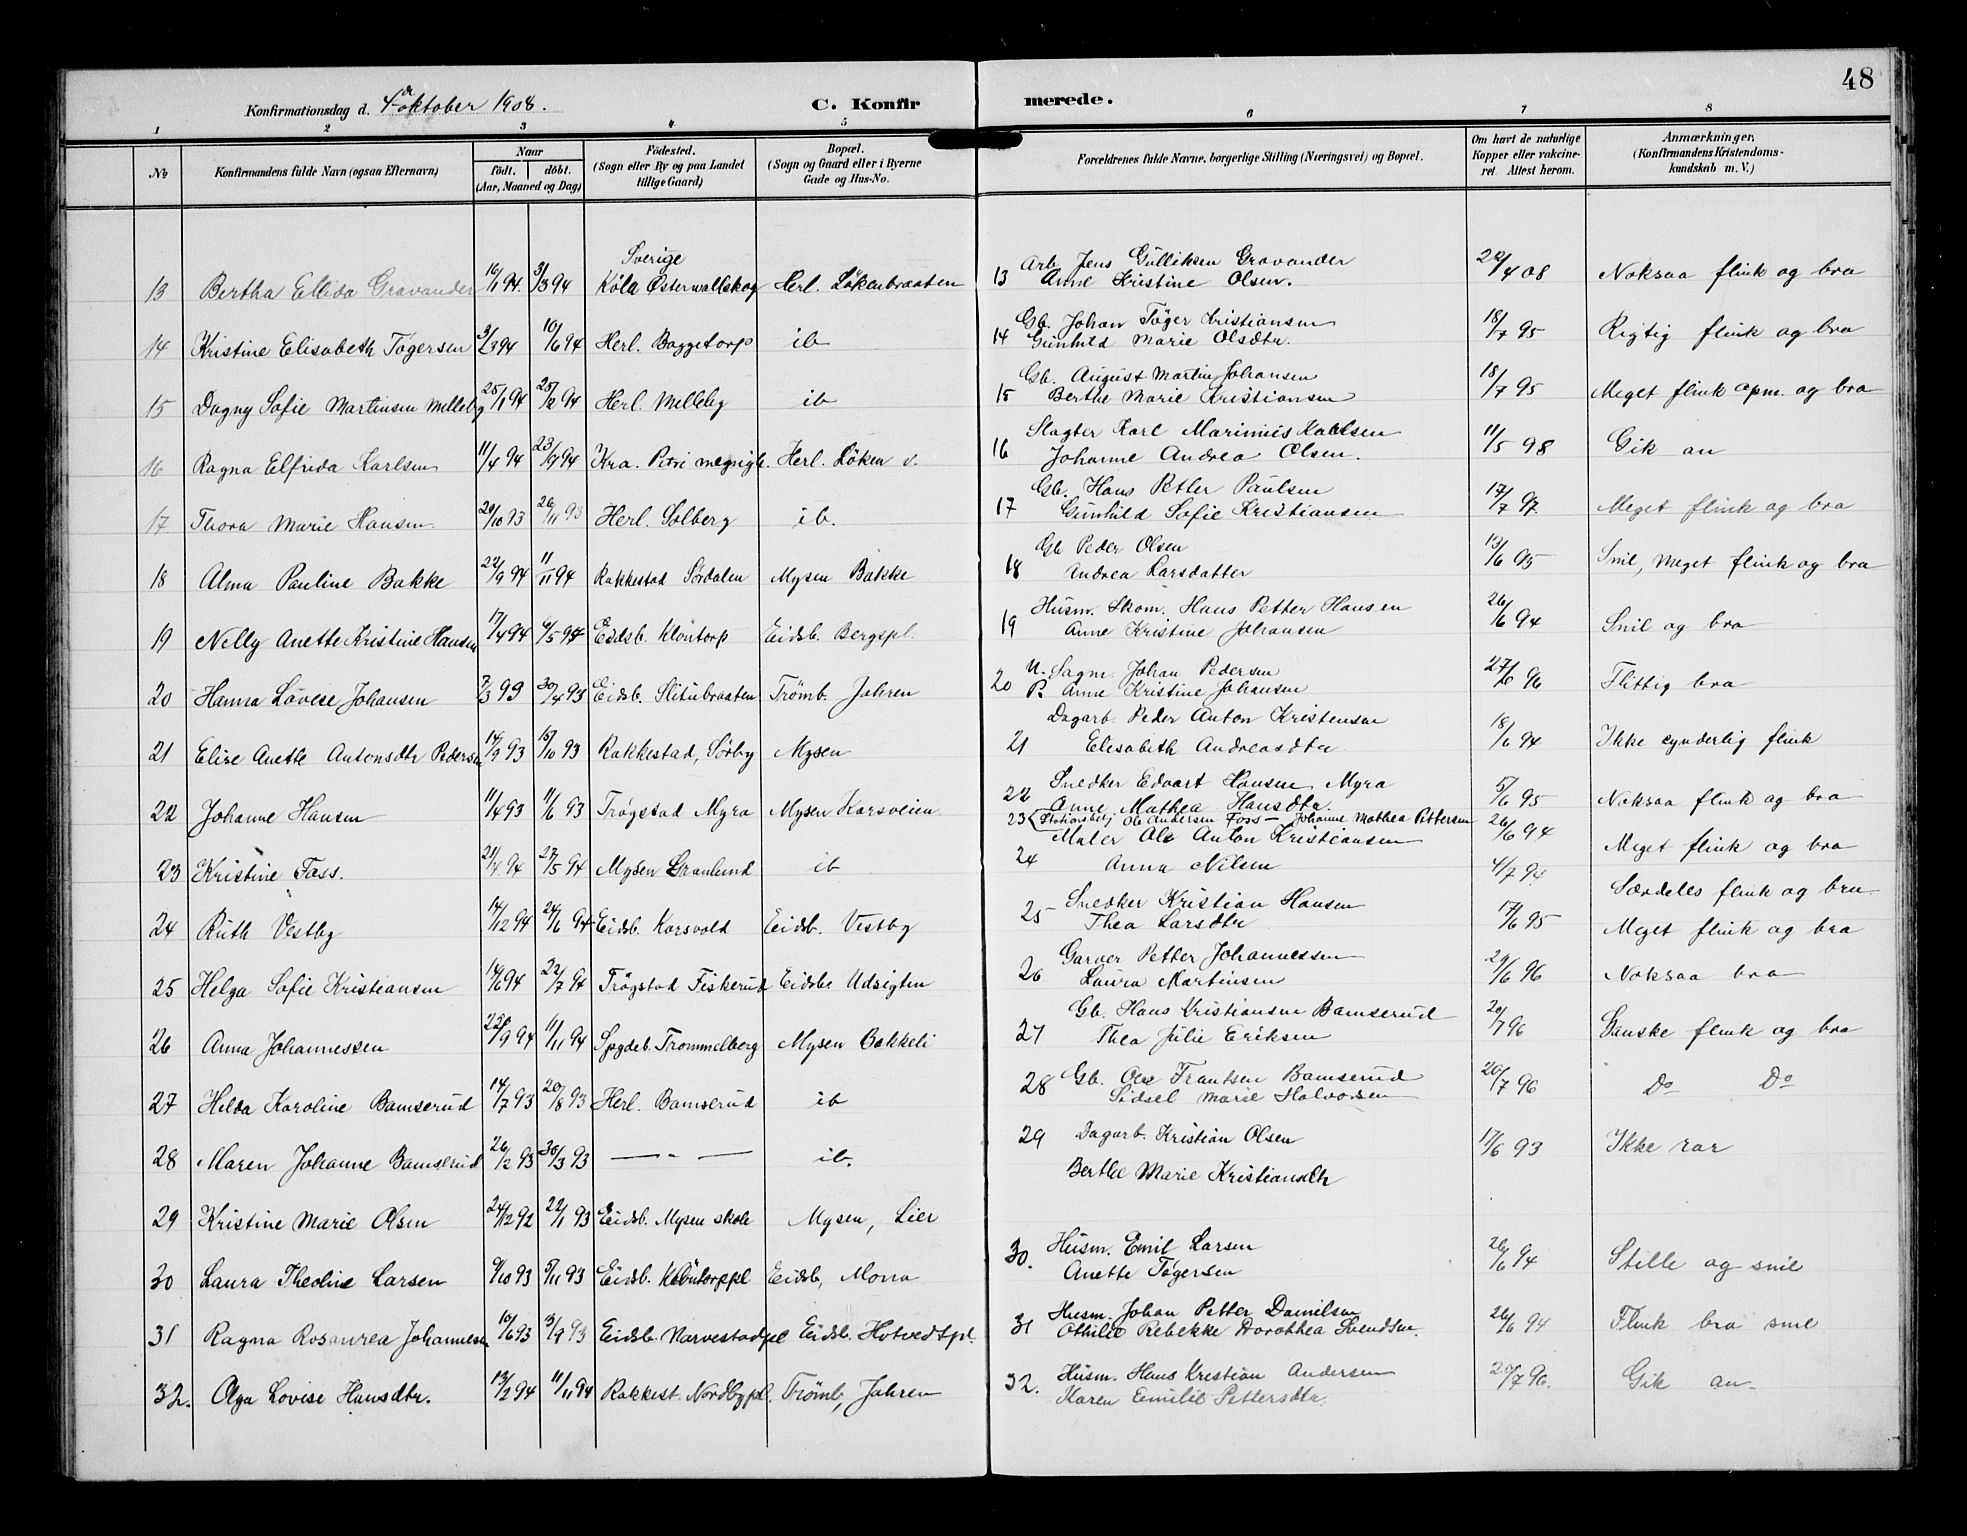 48
Konfirmationsdag d. 4de oktober 1908.
C. Konfirmerede.
1 2 3 4 5 6 7 8
No
Konfirmandens fulde Navn (ogsaa Efternavn)
Naar
født. døbt.
(Aar, Maaned og Dag)
Fødested.
(Sogn eller By og paa Landet
tillige Gaard)
Bopæl.
(Sogn og Gaard eller i Byerne
Gade og Hus-No.
Forældrenes fulde Navne, borgerlige Stilling (Næringsvei) og Bopæl.
Om havt de naturlige
Kopper eller vakcine-
ret Attest herom.
Anmærkninger.
(Konfirmandens Kristendoms-
kundskab m. V.)
Sverige
13 Bertha Ellida Gravander 16/1 94. 3/3 94 Köla Østerwallskog Herl. Løkenbraaten
14 Kristine Elisabeth Tøgersen 3/3 94 10/6 94 Herl. Baggetorp ib
15 Dagny Sofie Martinsen Melleby 25/1 94 25/2 94 Herl. Melleby ib
16 Ragna Elfrida Karlsen 11/4 94 23/9 94 Kra. Petri Herl. Løken v.
17 Thora Marie Hansen 29/10 93 26/11 93 Herl. Solberg ib.
18 Alma Pauline Bakke 22/9 94 11/11 94 Rakkestad Sørdalen Mysen Bakke
19 Nelly Anette Kristine Hansen 17/4 94 6/5 94 Eidsb. Kløntorp Eidsb. Bergspl.
20 Hanna Lovise Johansen 7/3 93 30/4 93 Eidsb. Slitubraaten Trømb. Jahren
21 Elise Anette Antonsdtr Pedersen 14/9 93 15/10 93 Rakkestad, Sørby Mysen
22 Johanne Hansen 11/4 93 11/6 93 Trøgstad Myra Mysen Korsveien
23 Kristine Foss. 21/4 94 27/5 94 Mysen Granlund ib
24 Ruth Vestby 14/12 94 24/6 94 Eidsb. Korsvold Eidsb. Vestby
25 Helga Sofie Kristiansen 14/6 94 22/7 94 Trøgstad Fiskerud Eidsbe Udsigten
26 Anna Johannessen 22/9 94 11/11 94 Spydeb. Trommelberg Mysen Bakkeli
27 Helda Karoline Bamserud 14/7 93 20/8 93 Herl. Bamserud ib
28 Maren Johanne Bamserud 26/2 93 30/3 93 — " — ib.
29 Kristine Marie Olsen 24/12 92 22/1 93 Eidsb. Mysen skole Mysen, Lier
30 Laura Theoline Larsen 9/10 93 5/11 93 Eidsb. Kløntorppl Eidsb, Mona
31 Ragna Rosaurea Johannesen 10/6 93 3/9 93 Eidsb. Narvestadpl Eidsb. Hotvedtpl.
32. Olga Lovise Hansdtr. 12/2 94 11/11 94 Rakkest. Nordbypl. Trømb, Jahren
13 Arb. Jens Gulliksen Gravander 22/4 08 Noksaa flink og bra
Anne Kristine Olsen.
14 Gb. Johan Tøger Kristiansen 18/7 95 Rigtig flink og bra
Gunhild Marie Olsdtr.
15 Gb. August Martin Johansen 18/7 95 Meget flink opm. og bra
Berthe Marie Kristiansen
16 Slagter Karl Marinius Karlsen 11/5 98 Gik an
Johanne Andrea Olsen.
17 Gb. Hans Petter Paulsen 17/7 97 Meget flink og bra
Gunhild Sofie Kristiansen
18 Gb Peder Olsen 13/6 95 Snil, meget flink og bra
Andrea Larsdatter
19 Husm. Skom. Hans Petter Hansen 26/6 94 Snil og bra
Anne Kristine Johansen
20 U. Sagm. Johan Pedersen 27/6 96 Flittig bra
P. Anne Kristine Johansen
21 Dagarb. Peder Anton Kristensen 18/6 94 Ikke synderlig flink
Elisabeth Andreasdtr
22 Snedker Edvart Hansen Myra 5/6 95 Noksaa flink og bra
Anne Mathea Hansdtr.
23 Stationsbetj Ole Andersen Foss — Johanne Mathea Pettersen 26/6 94 Meget flink og bra
24 Maler Ole Anton Kristiansen 4/7 94 Særdeles flink og bra
Anna Nilsen
25 Snedker Kristian Hansen 17/6 95 Meget flink og bra
Thea Larsdtr
26 Garver Petter Johannessen 29/6 96 Noksaa bra
Laura Martinsen
27 Gb. Hans Kristiansen Bamserud 20/7 96 Ganske flink og bra
Thea Julie Eriksen
28 Gb. Ole Frantsen Bamserud 20/7 96 Do Do
Sidsel Marie Halvorsen
29 Dagarb. Kristian Olsen 17/6 93 Ikke rar
Berthe Marie Kristiansdtr
30. Husm. Emil Larsen 26/6 94 Stille og snil
Anette Tøgersen
31 Husm. Johan Petter Danielsen 26/6 94 Flink bra snil
Othilie Rebekke Dorothea Svendsen.
32. Husm. Hans Kristian Andersen 20/7 96. Gik an
Karen Emilie Pettersdtr.